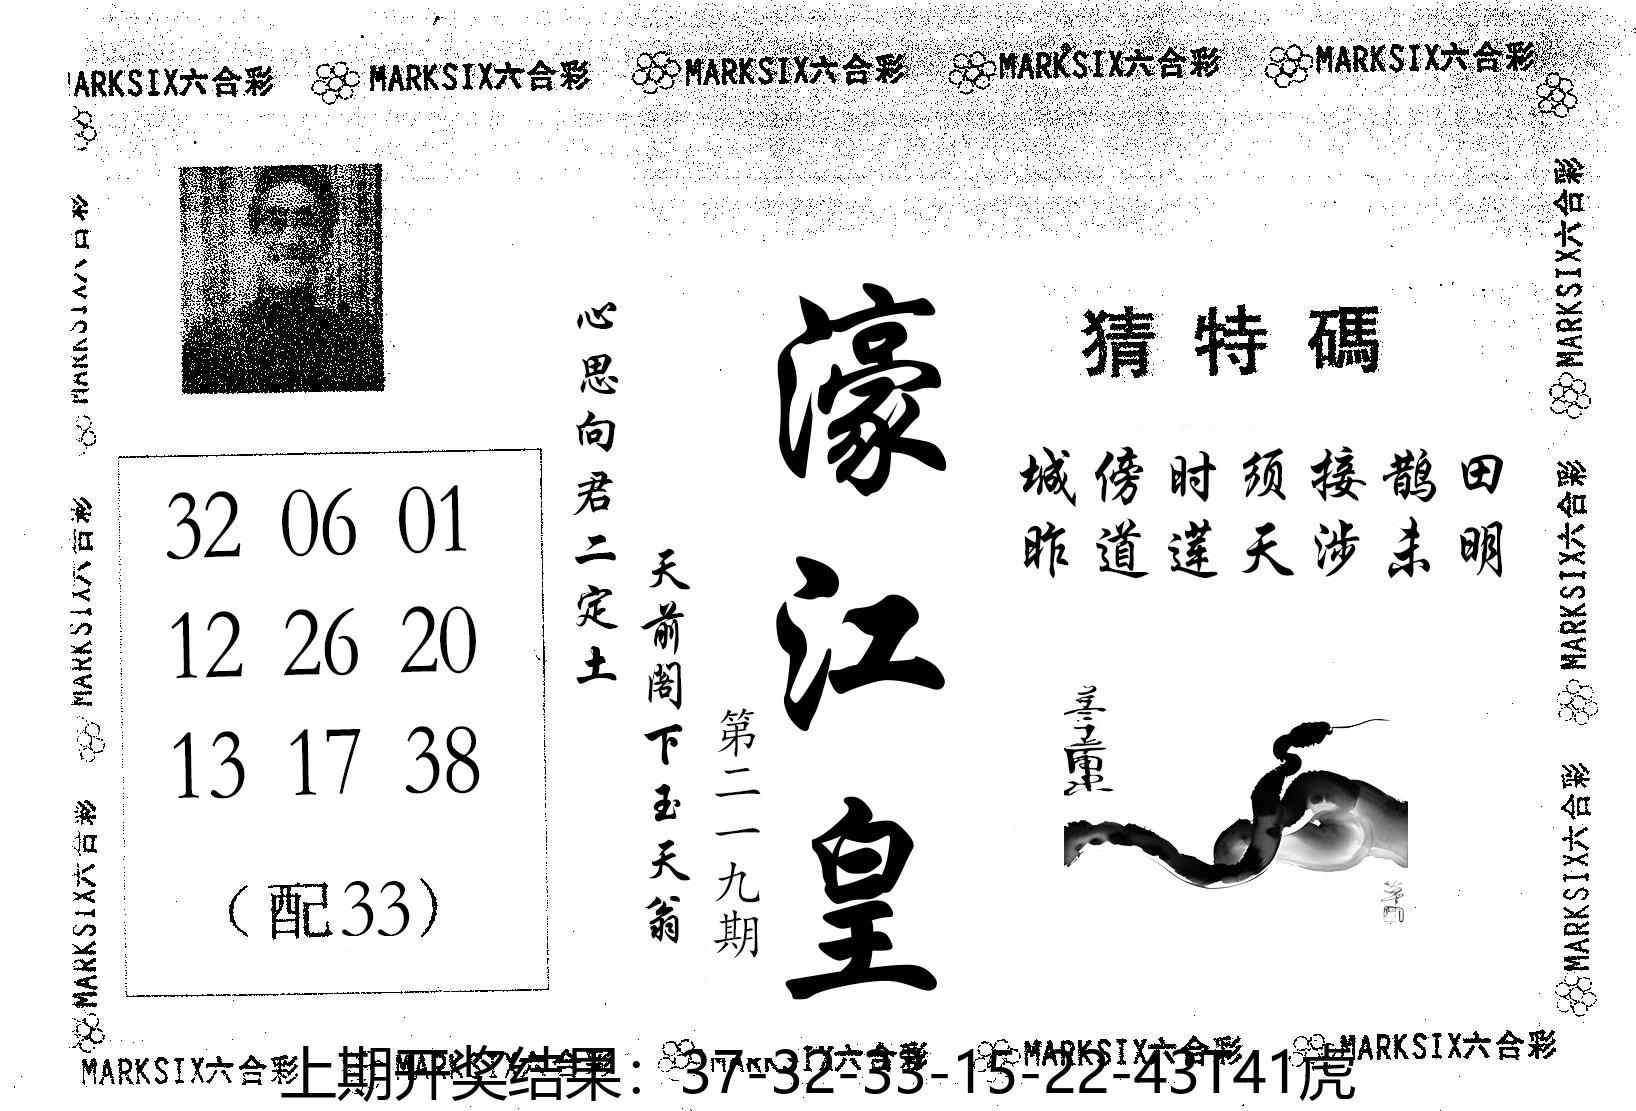 MARKSIX六合彩 MARKSIX六合彩 MARKSIX六合彩 MARKSIX六合彩 MARKSIX六合彩
MARKSIX六合彩
MARKSIX六合彩
MARKSIX六合彩
MARKSIX六合彩
MARKSIX六合彩
MARKSIX六合彩
32 06 01
12 26 20
13 17 38
（配33）
心思向君二定土
天前阁下玉天翁
第二一九期
濠江皇
猜特碼
城傍时须接鹊田
昨道莲天涉未明
MARKSIX六合彩 MARKSIX六合彩 MARKSIX六合彩 MARKSIX六合彩 MARKSIX六合彩
上期开奖结果：37-32-33-15-22-43T41虎